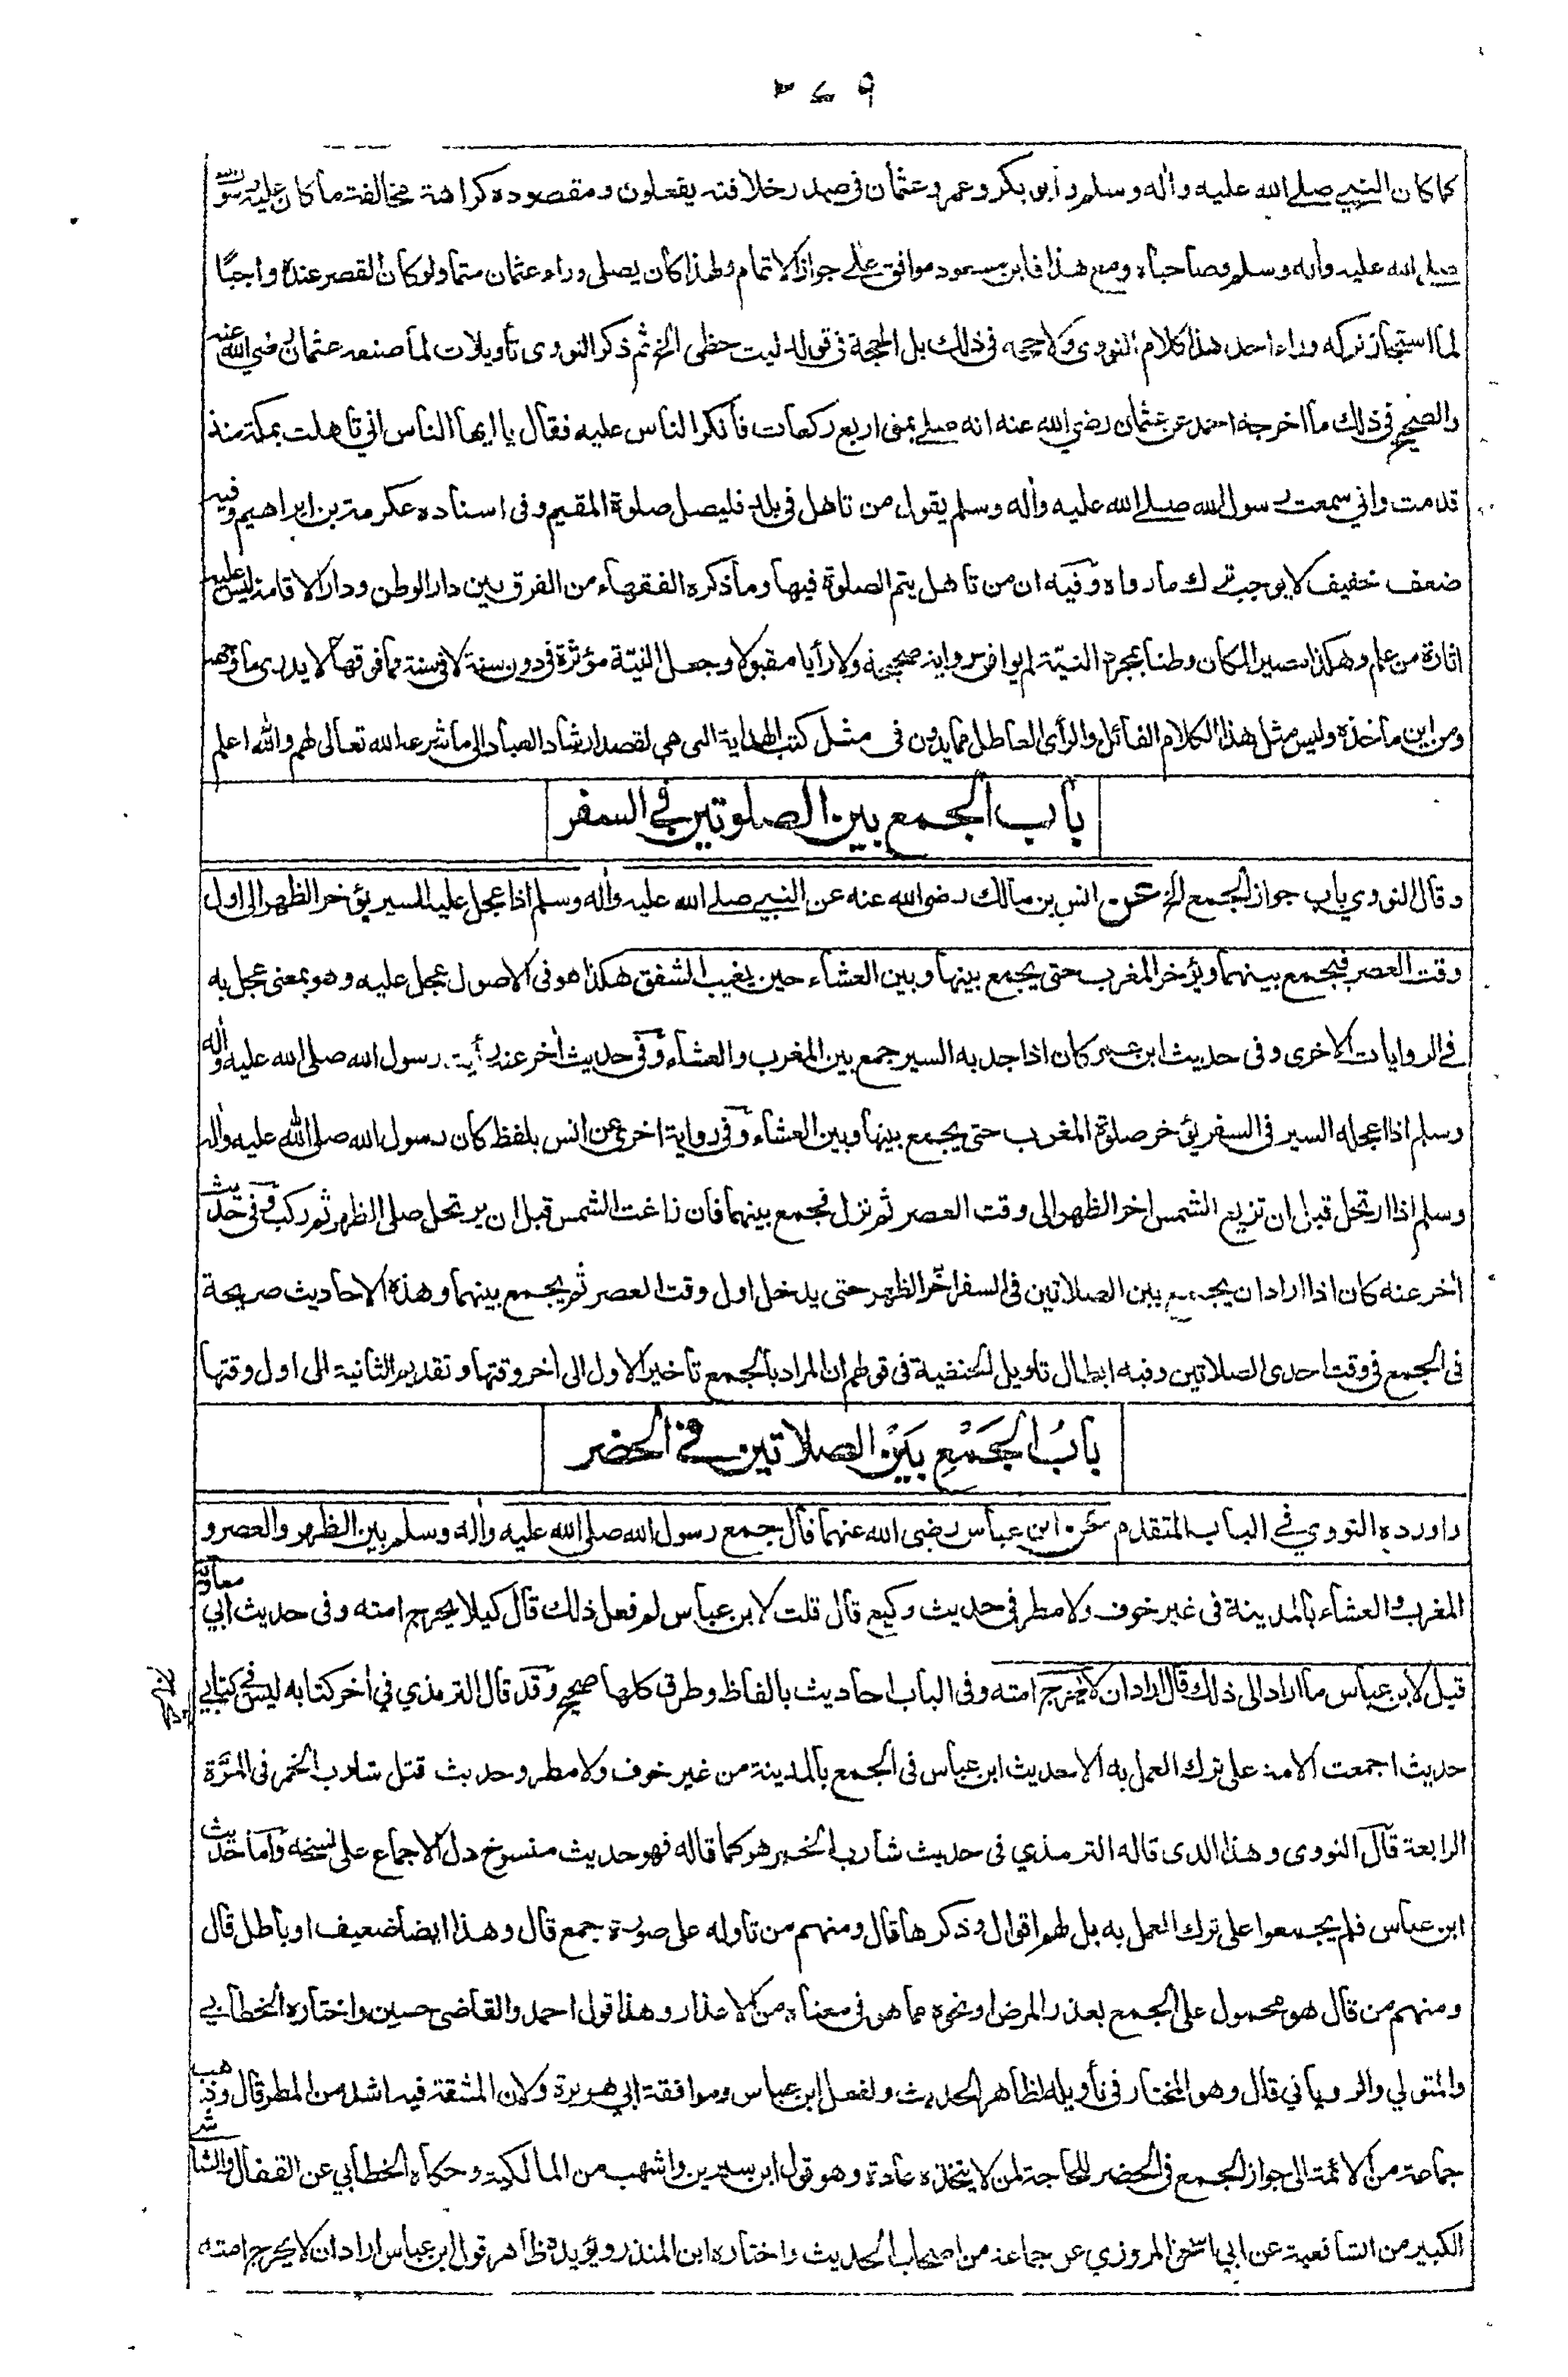 ٣٤٩
كما كان النبي صلى الله عليه وأله وسلم وأبو بكر وعمر وعثمان في صدر خلافته يفعلون ومقصوده كراهة مخالفة ما كان عليه رسول الله
صلى الله عليه وأله وسلم وصاحباه ومع هذا فابن مسعود موافق على جواز الاتمام ولهذا كان يصلى وراء عثمان متما ولو كان القصر عنده واجبًا
لما استجاز تركه وراء احد هذا كلام النووى ولا حجة في ذلك بل الحجة في قوله ليت حظى الخ ثم ذكر النووى تأويلات لما صنعه عثمان رضي الله عنه
والصحيح في ذلك ما اخرجه احمد عن عثمان رضي الله عنه انه صلى بمنى اربع ركعات فأنكر الناس عليه فقال يا ايها الناس اني تأهلت بمكة منذ
قدمت واني سمعت رسول الله صلى الله عليه وأله وسلم يقول من تاهل في بلد فليصل صلوة المقيم وفى اسناده عكرمة بن ابراهيم وفيه
ضعف خفيف لا يوجب ترك ما رواه وفيه ان من تاهل يتم الصلوة فيها وما ذكره الفقهاء من الفرق بين دار الوطن ودار الاقامة ليس عليه
اثارة من علم وهكذا تصيير المكان وطنا بمجرد النية لم يوافق رواية صحيحة ولا رأيا مقبولا وجعل النية مؤثرة في دون سنة لا في سنة فما فوقها لا يدرى ما وجهه
ومن اين مأخذه وليس مثل هذا الكلام الفائل والرأى العاطل مما يدون فى مثل كتب الهداية التى هي لقصد ارشاد العباد الى ما شرعه الله تعالى لهم والله اعلم
باب الجمع بين الصلوتين في السفر
وقال النووي باب جواز الجمع الخ عن انس بن مالك رضى الله عنه عن النبي صلى الله عليه وأله وسلم اذا عجل عليه السير يؤخر الظهر الى اول
وقت العصر فيجمع بينهما ويؤخر المغرب حتى يجمع بينها وبين العشاء حين يغيب الشفق هكذا هو فى الاصول عجل عليه وهو بمعنى عجل به
في الروايات الاخرى وفى حديث ابن عمر كان اذا جد به السير جمع بين المغرب والعشاء وفى حديث أخر عنه رأيت رسول الله صلى الله عليه وأله
وسلم اذا اعجله السير فى السفر يؤخر صلوة المغرب حتى يجمع بينها وبين العشاء وفى رواية اخرى عن انس بلفظ كان رسول الله صلى الله عليه وأله
وسلم اذا ارتحل قبل ان تزيغ الشمس اخر الظهر الى وقت العصر ثم نزل فجمع بينهما فان زاغت الشمس قبل ان يرتحل صلى الظهر ثم ركب وفى حديث
أخر عنه كان اذا اراد ان يجمع بين الصلاتين فى السفر اخّر الظهر حتى يدخل اول وقت العصر ثم يجمع بينهما وهذه الاحاديث صريحة
فى الجمع فى وقت احدى الصلاتين وفيه ابطال تاويل الحنفية فى قولهم ان المراد بالجمع تأخير الاول الى أخر وقتها وتقديم الثانية الى اول وقتها
بابُ الجَمْعِ بَيْنَ الصلاتين في الحضر
واورده النووي في الباب المتقدم عن ابن عباس رضى الله عنهما قال جمع رسول الله صلى الله عليه وأله وسلم بين الظهر والعصر و
المغرب والعشاء بالمدينة فى غير خوف ولا مطر في حديث وكيع قال قلت لابن عباس لم فعل ذلك قال كيلا يحرج امته وفى حديث ابي معاوية
قيل لابن عباس ما اراد الى ذلك قال اراد ان لا يحرج امته وفى الباب احاديث بالفاظ وطرق كلها صحيح وقد قال الترمذي في أخر كتابه ليس في كتابي
حديث اجمعت الامة على ترك العمل به الا حديث ابن عباس فى الجمع بالمدينة من غير خوف ولا مطر وحديث قتل شارب الخمر فى المرّة
الرابعة قال النووى وهذا الذى قاله الترمذي فى حديث شارب الخمر هو كما قاله فهو حديث منسوخ دل الاجماع على نسخه وأما حديث
ابن عباس فلم يجمعوا على ترك العمل به بل لهم اقوال وذكرها قال ومنهم من تاوله على صورة جمع قال وهذا ايضا ضعيف او باطل قال
ومنهم من قال هو محمول على الجمع بعذر المرض او نحوه مما هو فى معناه من الاعذار وهذا قول احمد والقاضى حسين واختاره الخطابي
والمتولي والروياني قال وهو المختار فى تأويله لظاهر الحديث ولفعل ابن عباس وموافقة ابي هريرة ولان المشقة فيه اشد من المطر قال وذهب
جماعة من الائمة الى جواز الجمع فى الحضر للحاجة لمن لا يتخذه عادة وهو قول ابن سيرين واشهب من المالكية وحكاه الخطابي عن القفال والشاشى
الكبير من الشافعية عن ابي اسحق المروزي عن جماعة من اصحاب الحديث واختاره ابن المنذر ويؤيده ظاهر قول ابن عباس اراد ان لا يحرج امته